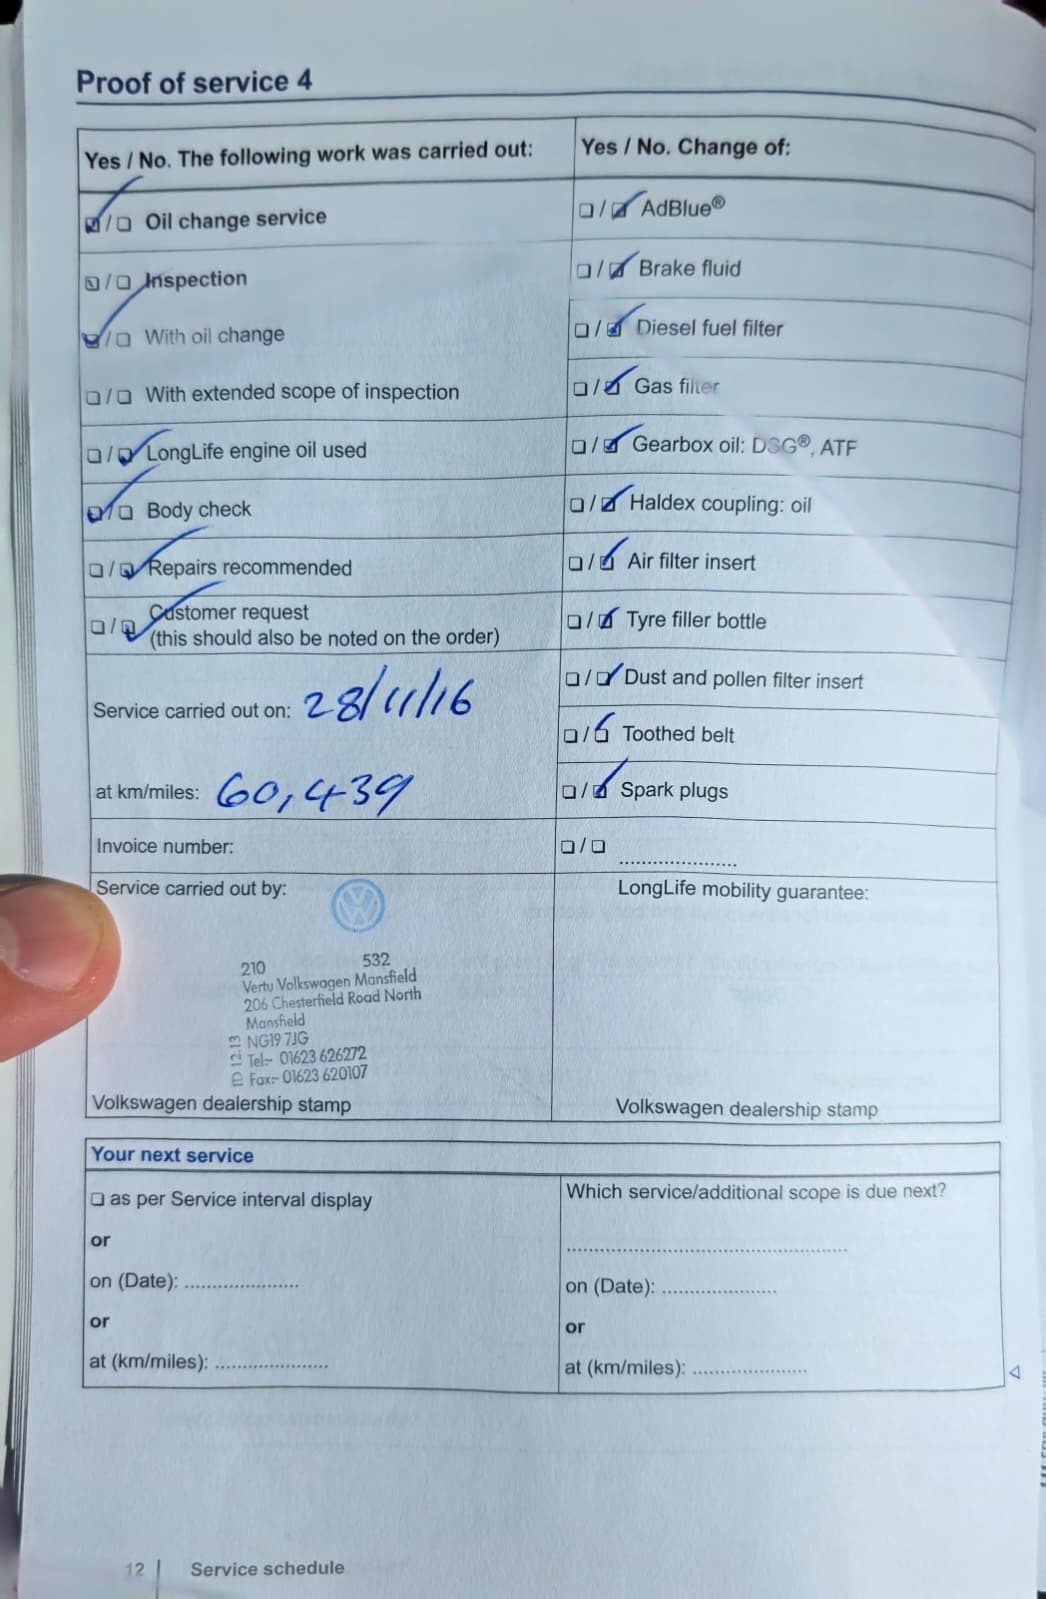 Proof of service 4
Yes / No. The following work was carried out:
☑/☐ Oil change service
☑/☐ Inspection
☑/☐ With oil change
☐/☐ With extended scope of inspection
☐/☑ LongLife engine oil used
☑/☐ Body check
☐/☑ Repairs recommended
☐/☑ Customer request
(this should also be noted on the order)
Service carried out on: 28/11/16
at km/miles: 60,439
Invoice number:
Service carried out by:
210 532
Vertu Volkswagen Mansfield
206 Chesterfield Road North
Mansfield
NG19 7JG
Tel:- 01623 626272
Fax:- 01623 620107
ID 12.13
Volkswagen dealership stamp
Yes / No. Change of:
☐/☑ AdBlue®
☐/☑ Brake fluid
☐/☑ Diesel fuel filter
☐/☑ Gas filter
☐/☑ Gearbox oil: DSG®, ATF
☐/☑ Haldex coupling: oil
☐/☑ Air filter insert
☐/☑ Tyre filler bottle
☐/☑ Dust and pollen filter insert
☐/☑ Toothed belt
☐/☑ Spark plugs
☐/☐ .....................
LongLife mobility guarantee:
Volkswagen dealership stamp
Your next service
☐ as per Service interval display
or
on (Date): .....................
or
at (km/miles): .....................
Which service/additional scope is due next?
...................................................
on (Date): .....................
or
at (km/miles): .....................
12 | Service schedule